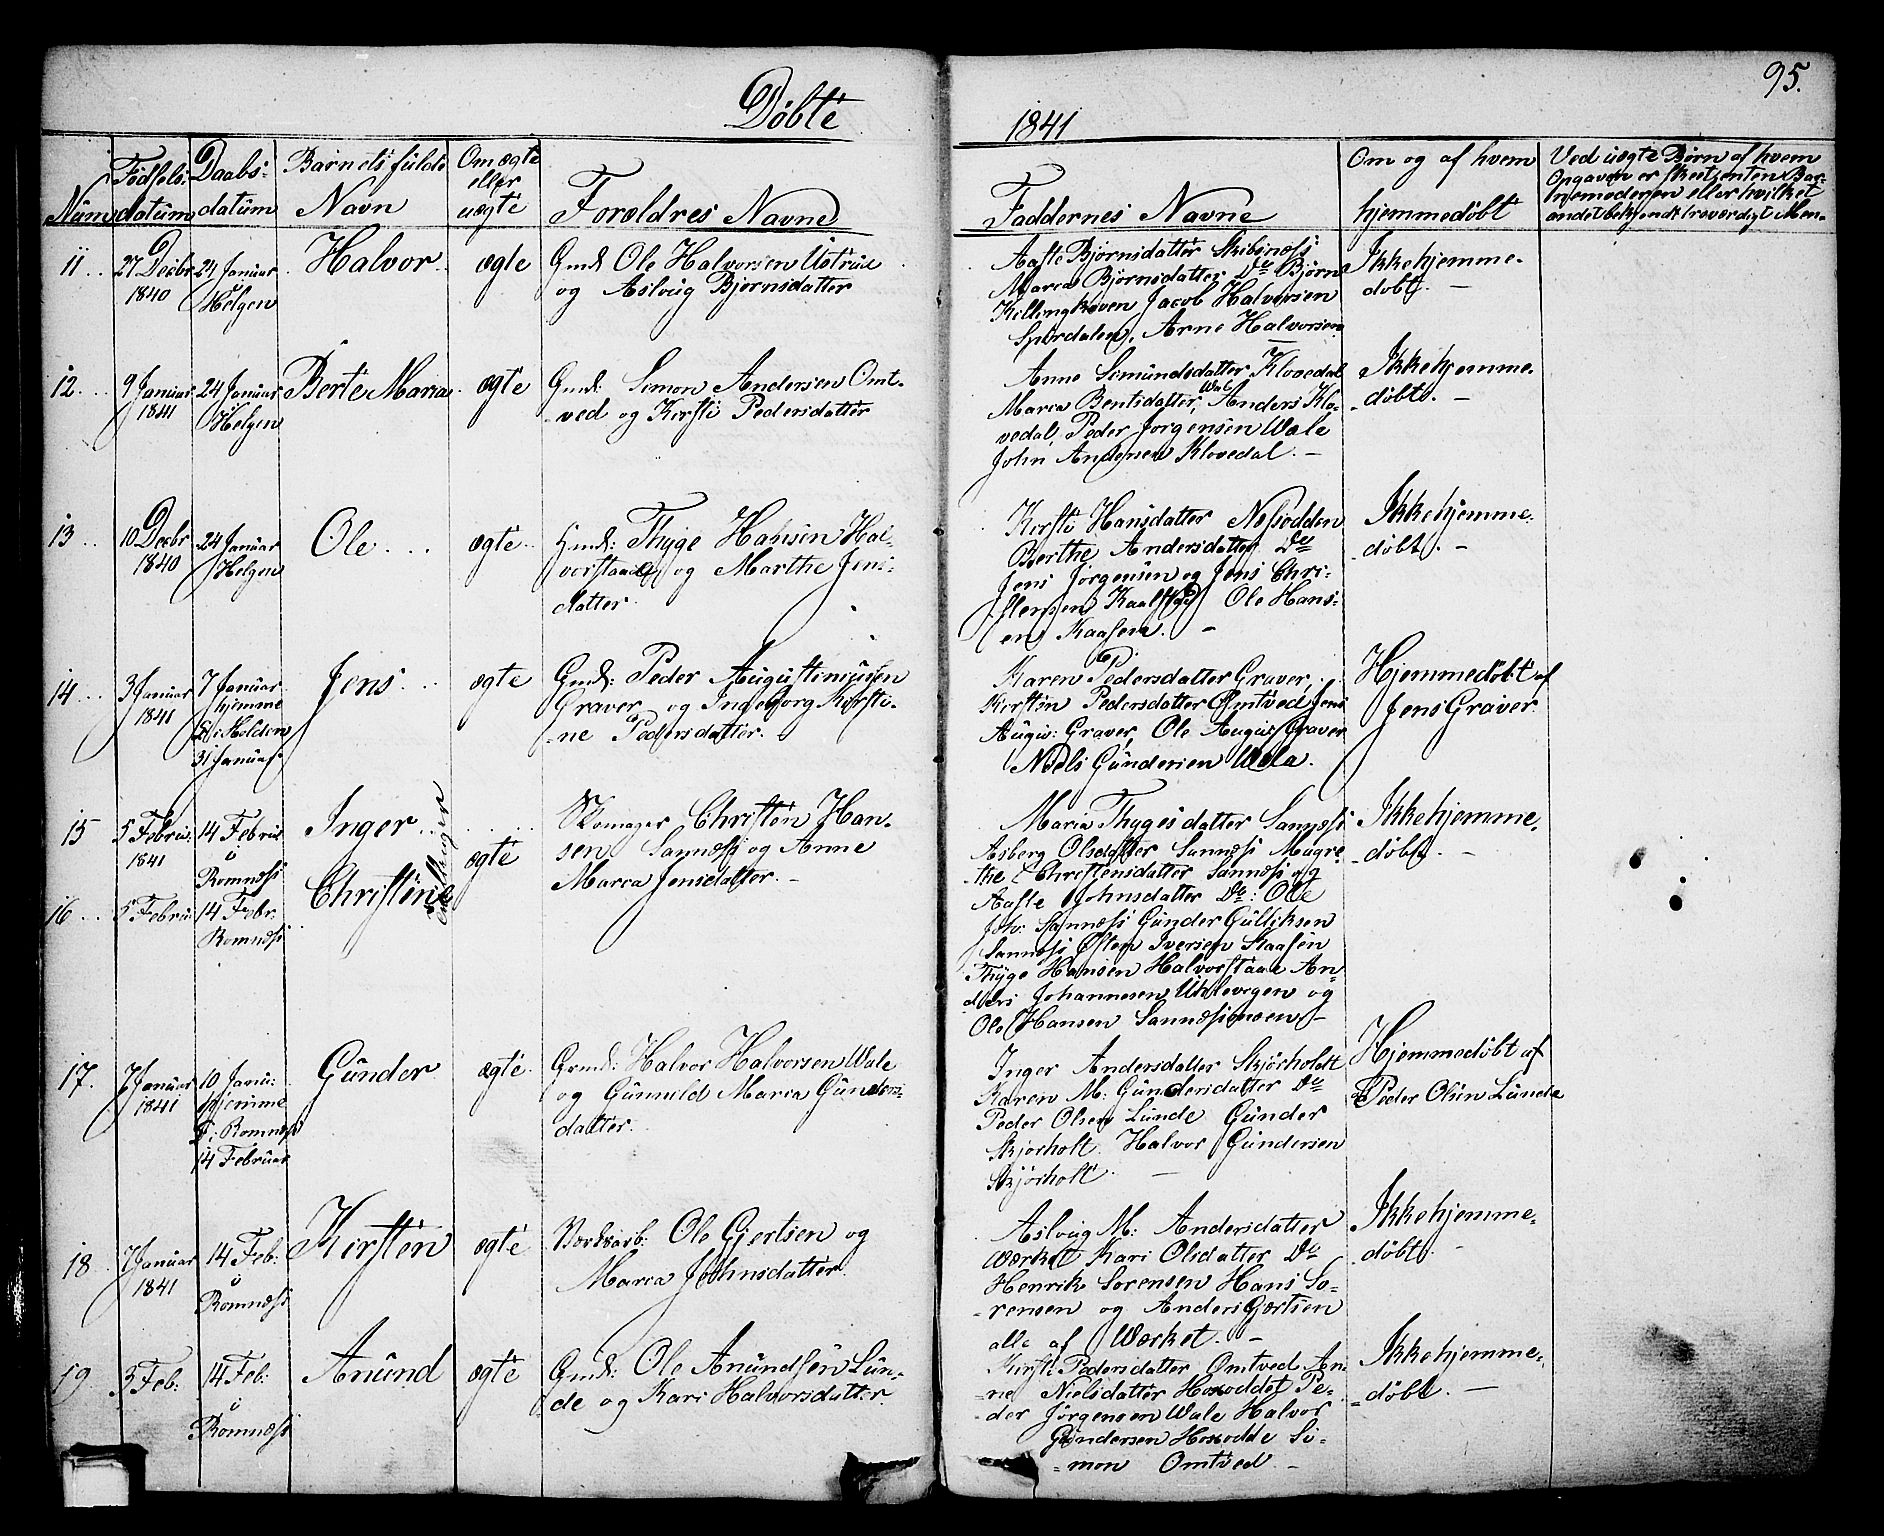 95.
Döbte
1841
Num
Födsels-
datum
Daabs-
datum
Barnets fulde
Navn
Om ægte
eller
uægte
Forældres Navne
Faddernes Navne
Om og af hvem
hjemmedöbt
Ved uægte Börn af hvem
Opgaven er skeet enten Bar-
nemoderen eller hvilket
andet bekjendt troværdigt Men-
11
27 Decbr
1840
24 Januar
Helgen
Halvor
ægte
Gmd: Ole Halvorsen Ustrud
og Aslaug Björnsdatter
Aaste Björnsdatter Skibsnæss
Maria Björnsdatter Do Björn
Jacob Halvorsen
Arne Halvorsen
Ikke hjemme-
döbt. -
12
9 Januar
1841
24 Januar
Helgen
Berte Maria
ægte
Gmd: Simon Andersen Omt-
ved og Kirsti Pedersdatter
Anne Simundsdatter Klovedal
Maria Bentsdatter, Wale Anders Klo-
vedal, Peder Jorgensen Wale
John Andersen Klovedal. -
Ikke hjemme-
-döbt. -
13
10 Decbr
1840
24 Januar
Helgen
Ole
ægte
Gmd: Thyge Hansen Hal-
vorstaae og Marthe Jens-
datter
Kirsti Hansdatter Nesodden
Berthe Andersdatter Do
Jens Jorgensen og Jens Chri-
stensen Ole Hans-
en Kaasene. -
Ikke hjemme-
-döbt. -
14
3 Januar
1841
7 Januar
hjemme
D: i Holden
31 Januar
Jens
ægte
Gmd: Peder Augustiniussen
Graver og Ingeborg Kirsti-
-ne Pedersdatter.
Karen Pedersdatter Graver,
Kirstin Pedersdatter Omtved Jens
Augus: Graver, Ole Augus: Graver
Niels Gundersen Wala.
Hjemmedöbt af
Jens Graver
15
5 Februa:
1841
14 Februa
Romnæss
Inger
ægte
Skomager Christen Han-
sen Sannæss og Anne
Marea Jensdatter. -
Maria Thygesdatter Sannæss
Asberg Olsdatter Sannæss Magre-
the Christensdatter Sannæss og
Aaste Johnsdatter Do: Ole
Joh: Sannæss Gunder Gulliksen
Sannæss Osten Iversen Kaasen
Thyge Hansen Halvorstaae An-
ders Johannesen Uhlevegen og
Ole Hansen Sannæsmoen -
Ikke hjemme-
-döbt. -
16
5 Februa
14 Febr.
Romnæss
Christine
17.
7 Januar
1841
10 Janu:
hjemme
D: i Romnæss
14 Februar
Gunder
ægte
Gmd: Halvor Halvorsen Wale
og Gunnild Marea Gunders-
datter.
Inger Andersdatter Skjörholdt
Karen M: Gundersdatter Do
Peder Olsen Lunde Gunder
Skjorholt Halvor Gundersen
Skjörholt. -
Hjemmedöbt af
Peder Olsen Lunde
18
7 Januar
1841
14 Feb:
Romnæss
Kirsten
ægte
Værksarb: Ole Gjertsen og
Marea Johnsdatter
Aslaug M: Andersdatter
Wærket Kari Olsdatter Do
Henrik Sorensen Hans So-
-rensen og Anders Gjertsen
alle af Wærket. -
Ikke hjemme-
-döbt. -
19
5 Feb:
14 Feb:
Romnæss
Anund
ægte
Gmd: Ole Anundsen Lun-
de og Kari Halvorsdatter
Kirsti Pedersdatter Omtved An-
-ne Nielsdatter Hoxoddet Pe-
-der Jörgensen Wale Halvor
Gundersen Hoxodde Si-
-mon Omtved. -
Ikke hjemme-
-döbt. -